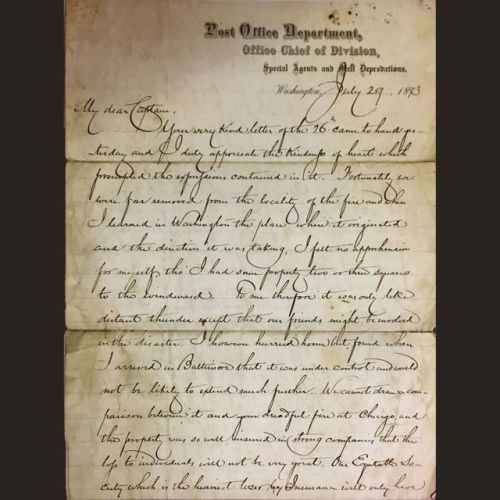 Post Office Department,
Office Chief of Division,
Special Agents and Mail Depredations,
Washington, July 29, 1873
My dear Captain,
Your very kind letter of the 26th came to hand yes-
terday and I duly appreciate the kindness of heart which
prompted the expressions contained in it. Fortunately we
were far removed from the locality of the fire and when
I learned in Washington the place when it originated
and the direction it was taking, I felt no apprehension
for myself, tho' I had some property two or three squares
to the windward. To me therefore it was only like
distant thunder except that our friends might be involved
in the disaster. I however hurried home but found when
I arrived in Baltimore that it was under control and would
not be likely to extend much further. We cannot draw a com-
parison between it and your dreadful fire at Chicago, and
the property was so well insured in strong companies that the
loss to individuals will not be very great. Our Equitable So-
ciety which is the heaviest loser by Insurance will only have